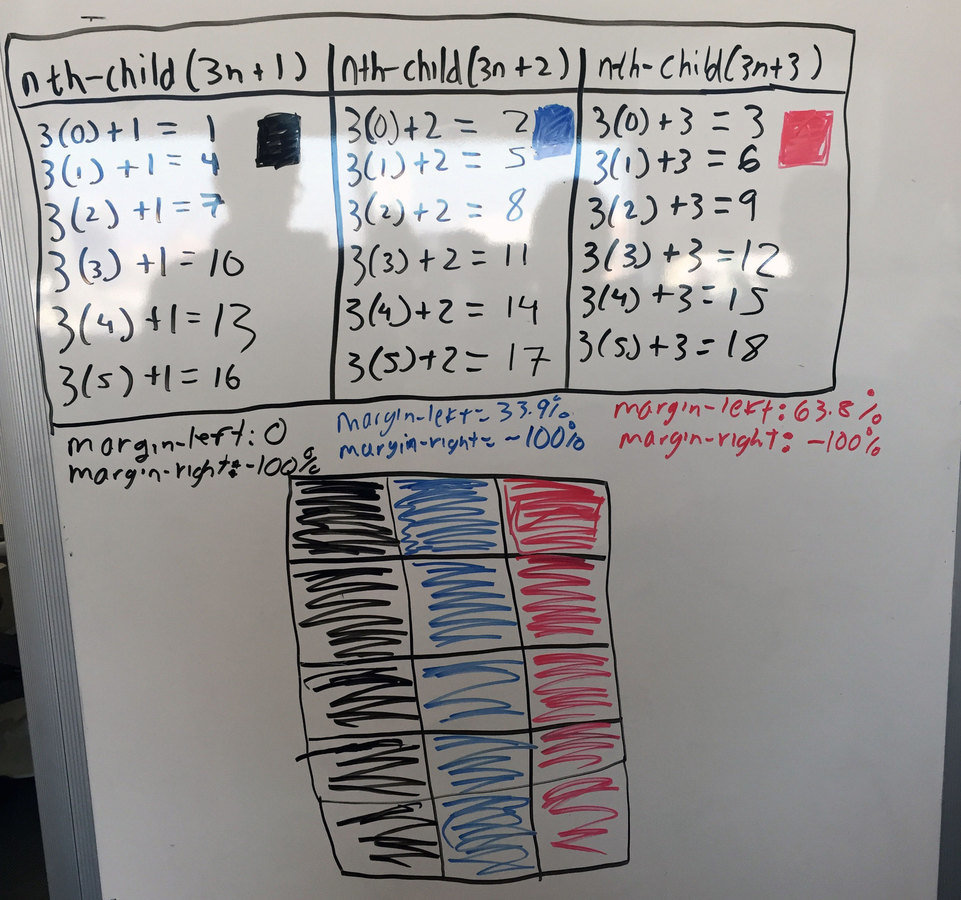 nth-child(3n+1) nth-child(3n+2) nth-child(3n+3)
3(0)+1 = 1 3(0)+2 = 2 3(0)+3 = 3
3(1)+1 = 4 3(1)+2 = 5 3(1)+3 = 6
3(2)+1 = 7 3(2)+2 = 8 3(2)+3 = 9
3(3)+1 = 10 3(3)+2 = 11 3(3)+3 = 12
3(4)+1 = 13 3(4)+2 = 14 3(4)+3 = 15
3(5)+1 = 16 3(5)+2 = 17 3(5)+3 = 18
margin-left: 0
margin-right: -100%
margin-left= 33.9%
margin-right= -100%
margin-left: 63.8%
margin-right: -100%